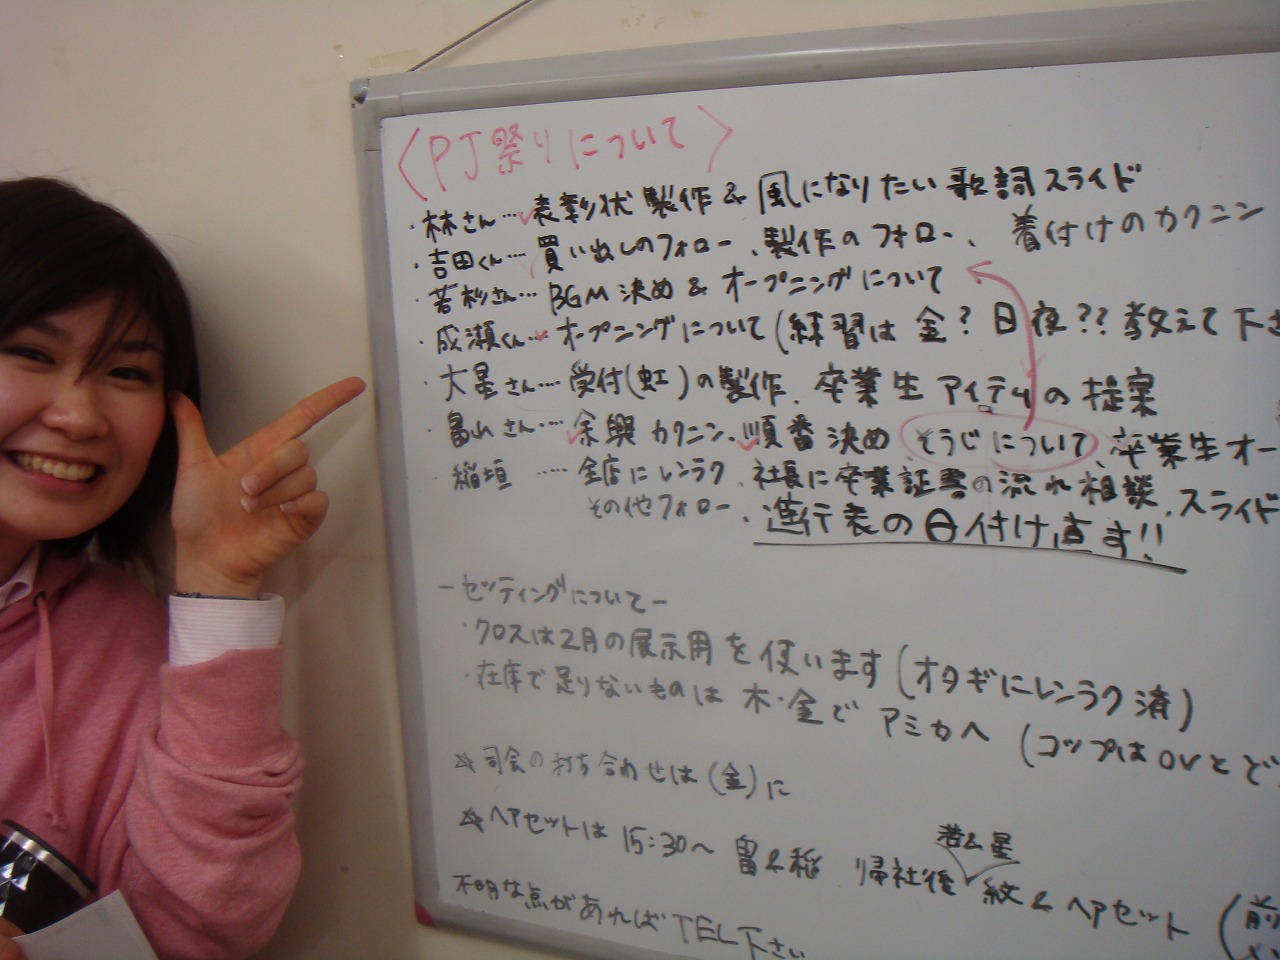 〈PJ祭りについて〉
・林さん…表彰状製作&風になりたい歌詞スライド
・吉田くん…買い出しのフォロー、製作のフォロー、着付けのカクニン
・若杉さん…BGM決め&オープニングについて
・成瀬くん…オープニングについて(練習は金?日夜??教えて下さ
・大星さん…受付(虹)の製作、卒業生アイテムの提案
・畠山さん…余興カクニン、順番決め そうじについて、卒業生オー
・稲垣 …全店にレンラク、社長に卒業証書の流れ相談、スライド
その他フォロー、進行表の日付け直す!!
-セッティングについて-
・クロスは2月の展示用を使います(オタギにレンラク済)
・在庫で足りないものは木・金でアミカへ(コップはOVとど
☆司会の打ち合わせは(金)に
☆ヘアセットは15:30〜畠&稲 帰社後 紋&ヘアセット(前
若&星
不明な点があればTEL下さい